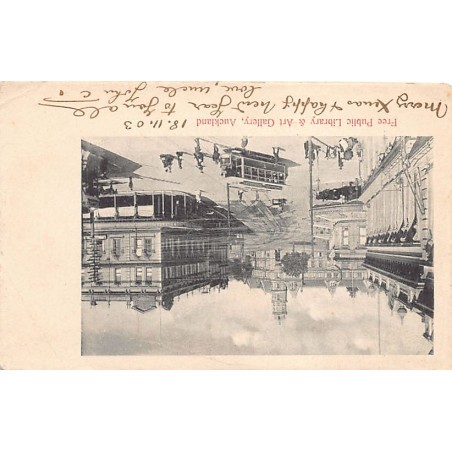 Free Public Library & Art Gallery, Auckland 18.11.03
Merry Xmas & happy New Year to you all
love, uncle John C